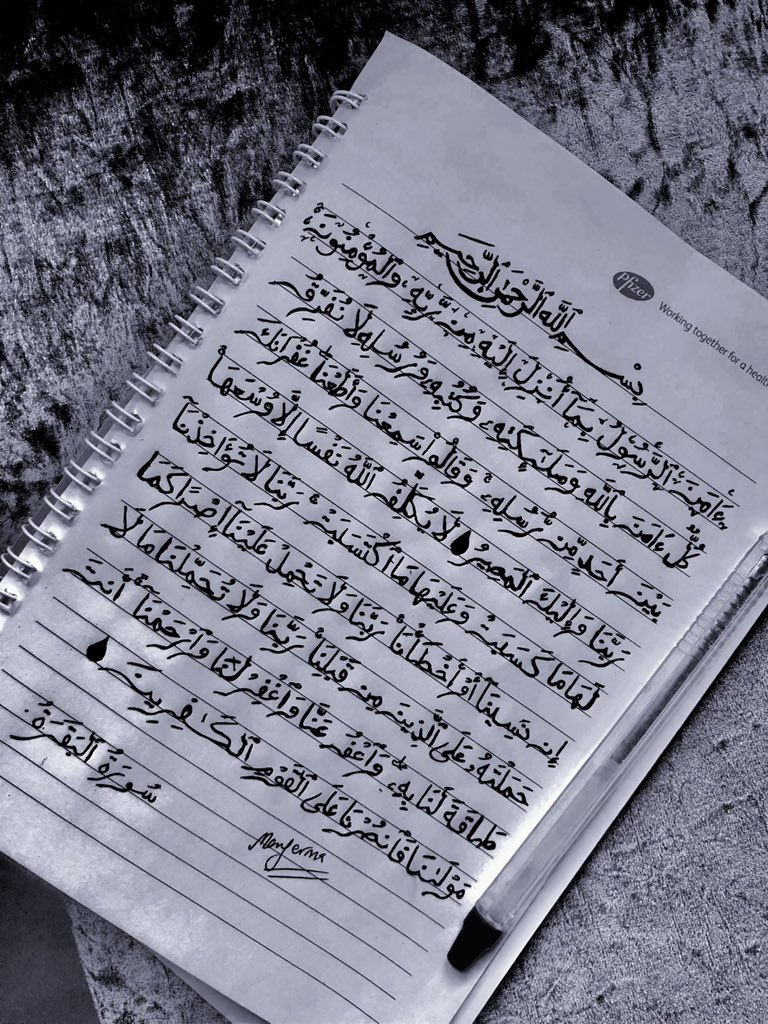 Pfizer
Working together for a health
بِسْمِ ٱللَّهِ ٱلرَّحْمَٰنِ ٱلرَّحِيمِ
ءَامَنَ ٱلرَّسُولُ بِمَآ أُنزِلَ إِلَيْهِ مِن رَّبِّهِۦ وَٱلْمُؤْمِنُونَ ۚ
كُلٌّ ءَامَنَ بِٱللَّهِ وَمَلَٰٓئِكَتِهِۦ وَكُتُبِهِۦ وَرُسُلِهِۦ لَا نُفَرِّقُ
بَيْنَ أَحَدٍ مِّن رُّسُلِهِۦ ۚ وَقَالُوا۟ سَمِعْنَا وَأَطَعْنَا ۖ غُفْرَانَكَ
رَبَّنَا وَإِلَيْكَ ٱلْمَصِيرُ لَا يُكَلِّفُ ٱللَّهُ نَفْسًا إِلَّا وُسْعَهَا ۚ
لَهَا مَا كَسَبَتْ وَعَلَيْهَا مَا ٱكْتَسَبَتْ ۗ رَبَّنَا لَا تُؤَاخِذْنَآ
إِن نَّسِينَآ أَوْ أَخْطَأْنَا ۚ رَبَّنَا وَلَا تَحْمِلْ عَلَيْنَآ إِصْرًا كَمَا
حَمَلْتَهُۥ عَلَى ٱلَّذِينَ مِن قَبْلِنَا ۚ رَبَّنَا وَلَا تُحَمِّلْنَا مَا لَا
طَاقَةَ لَنَا بِهِۦ ۖ وَٱعْفُ عَنَّا وَٱغْفِرْ لَنَا وَٱرْحَمْنَآ ۚ أَنتَ
مَوْلَىٰنَا فَٱنصُرْنَا عَلَى ٱلْقَوْمِ ٱلْكَٰفِرِينَ
سُورَةُ ٱلْبَقَرَةُ